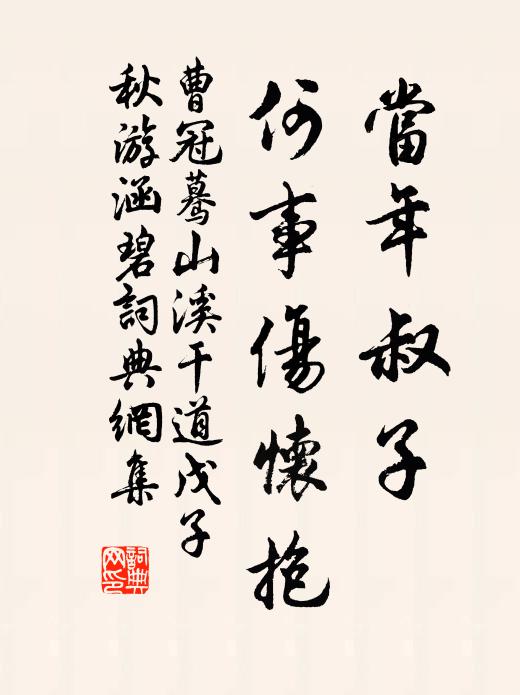 當年叔子
何事傷懷抱
曹冠驀山溪干道戊子
秋游涵碧詞典網集
詞典
网印